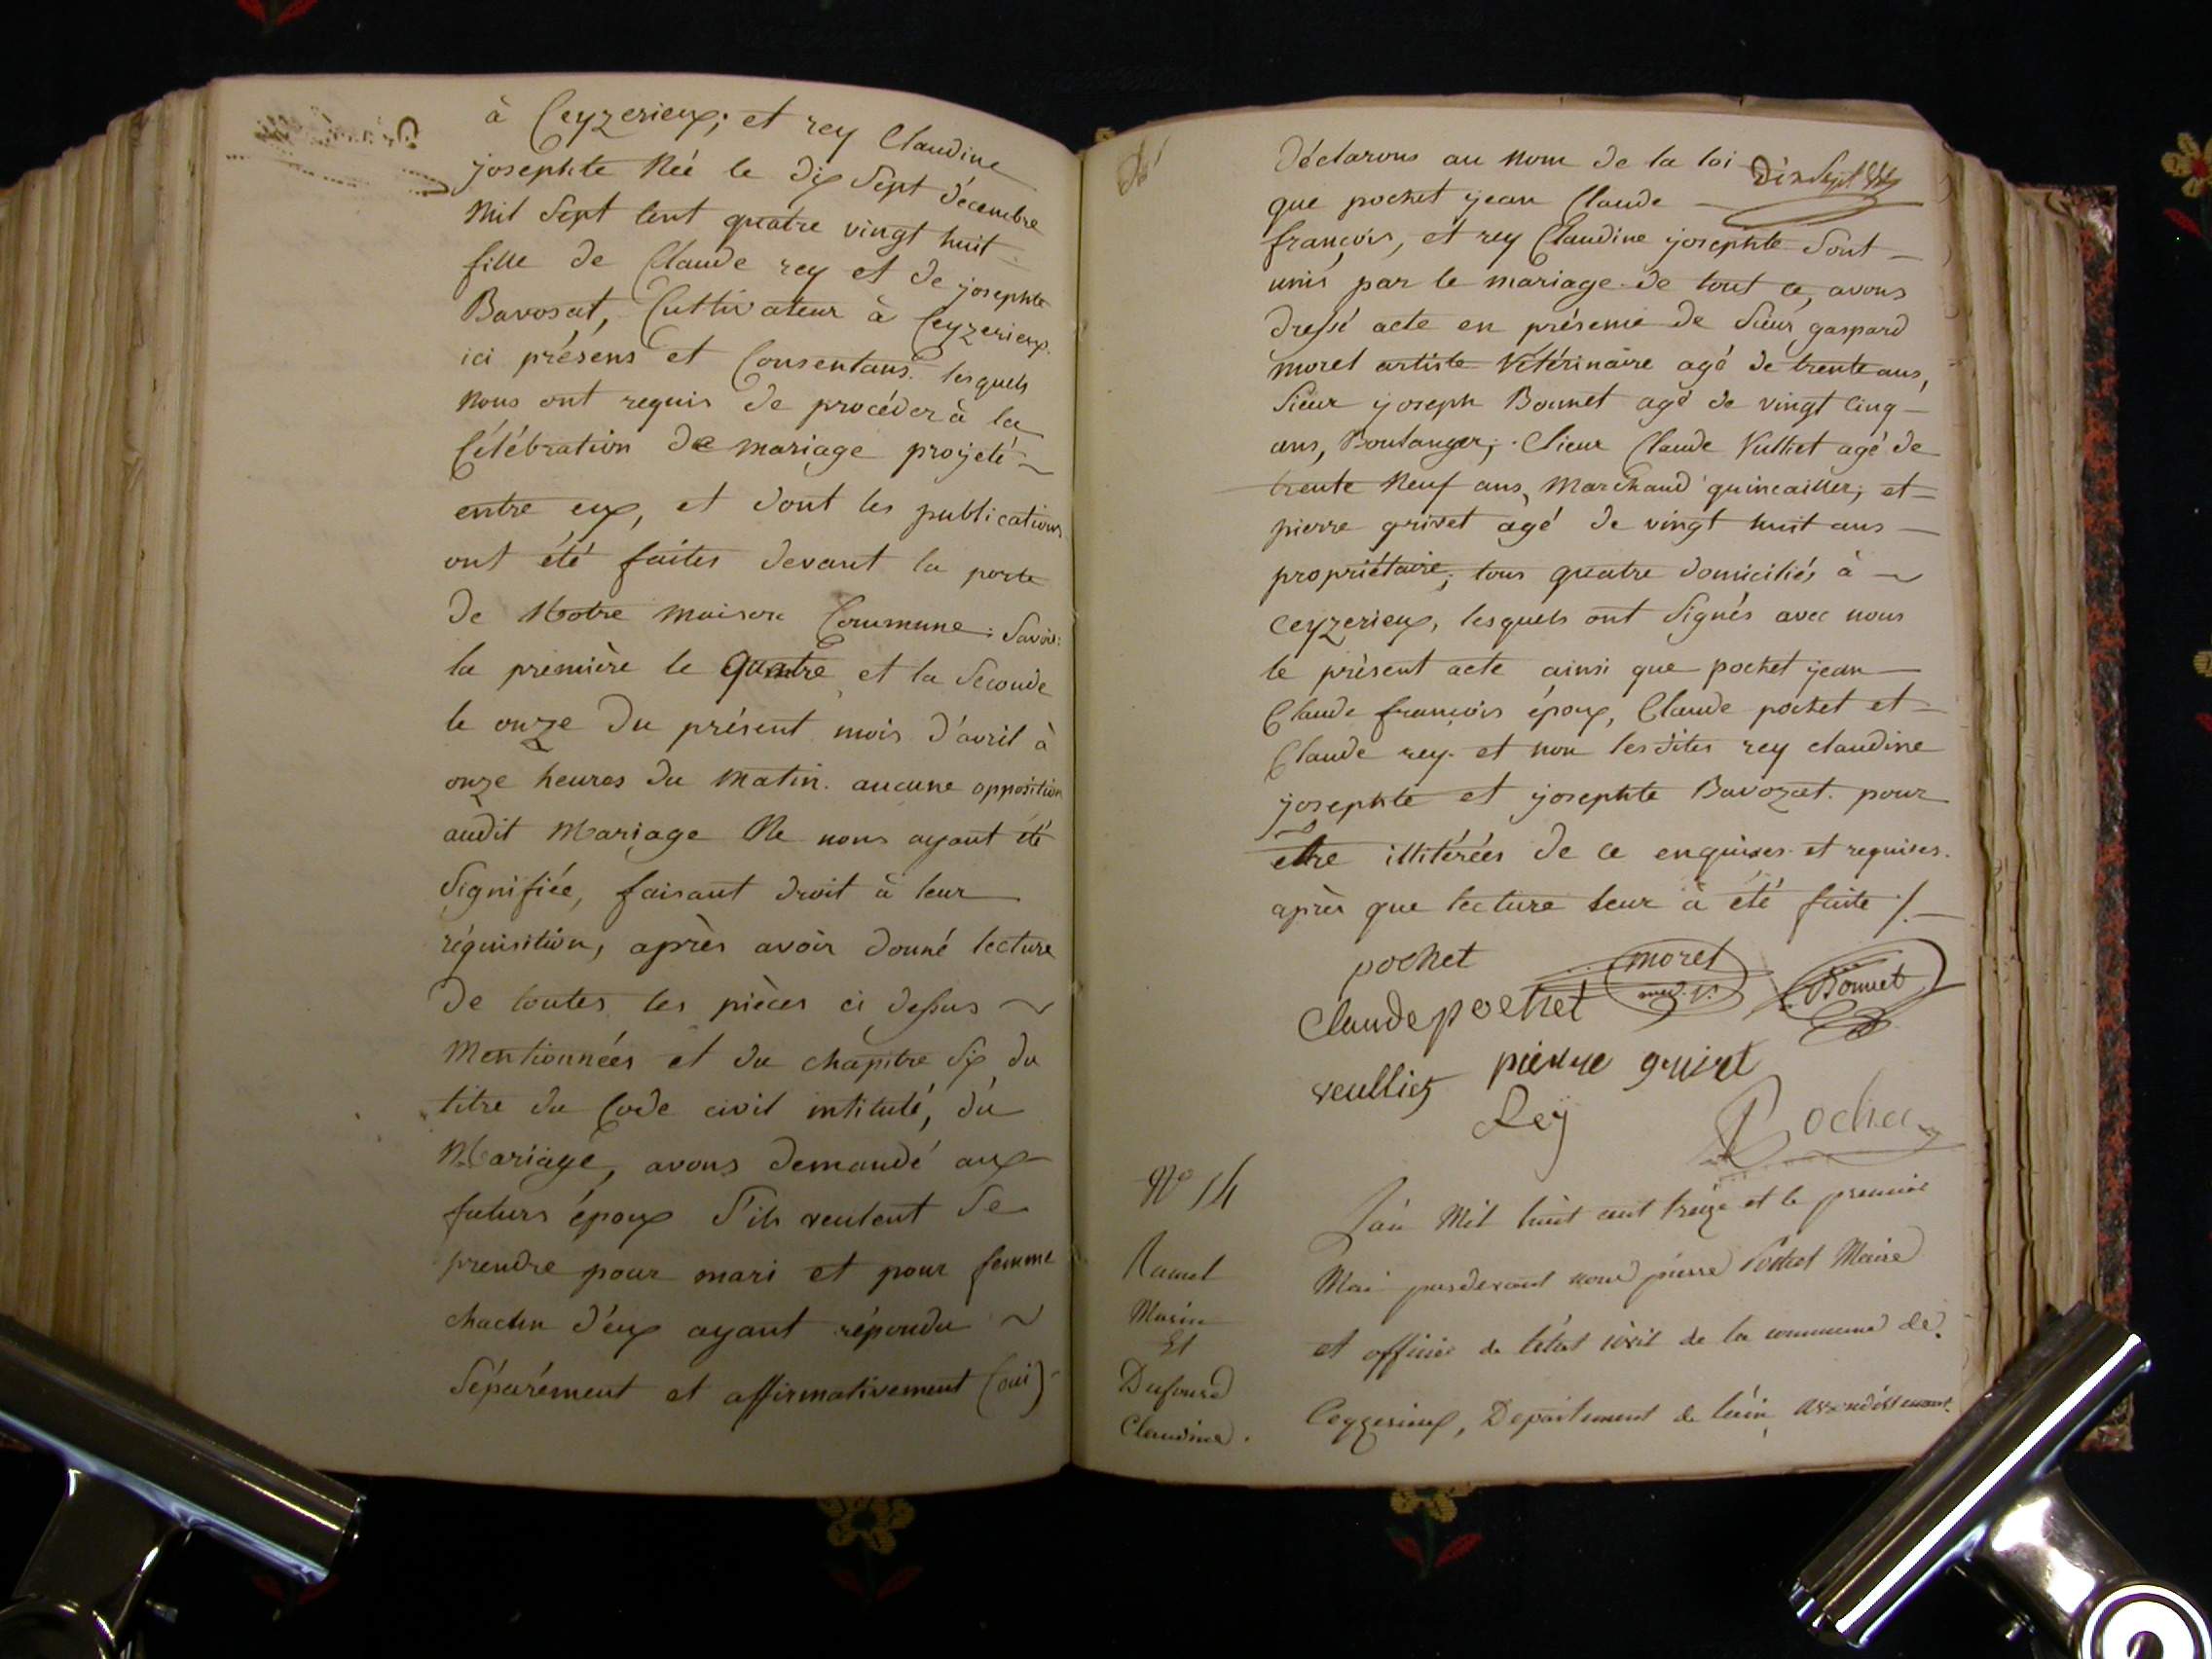 à Ceyzerieux; et rey Claudine
josephte Née le dix Sept décembre
Mil Sept Cent quatre vingt huit
fille de Claude rey et de josephte
Bavosat, Cultivateur à Ceyzerieux.
ici présens et Consentans. lesquels
nous ont requis de procéder à la
Célébration de mariage projeté
entre eux, et dont les publications
ont été faites devant la porte
de Notre Maison Commune: Savoir:
la première le quatre, et la Seconde
le onze du présent mois d'avril à
onze heures du Matin. aucune opposition
audit Mariage Ne nous ayant été
Signifiée, faisant droit à leur
réquisition, après avoir donné lecture
de toutes les pièces ci dessus
Mentionnées et du chapitre Six du
titre du Code civil intitulé, du
Mariage, avons demandé aux
futurs époux S'ils veulent Se
prendre pour mari et pour femme
chacun d'eux ayant répondu
Séparément et affirmativement (oui)
Déclarons au Nom de la loi
Dix Sept
que pochet jean Claude
françois, et rey Claudine josephte Sont
unis par le mariage de tout ce, avons
dressé acte en présence de Sieur gaspard
moret artiste Vétérinaire agé de trente ans,
Sieur joseph Bonnet agé de vingt Cinq
ans, Boulanger; Sieur Claude Vulliet agé de
trente Neuf ans, Marchand quincailler; et
pierre grivet agé de vingt huit ans
propriétaire; tous quatre domiciliés à
Ceyzerieux, lesquels ont Signés avec nous
le présent acte ainsi que pochet jean
Claude françois époux, Claude pochet et
Claude rey. et non lesdites rey claudine
josephte et josephte Bavozat. pour
etre illitérées de ce enquises et requises.
après que lecture leur à été faite /.
pochet
moret
Bonnet
Claude pochet
pierre grivet
veulliet
Reÿ
Pochet
N° 14
Ramel
Marin
Et
Dufourd
Claudine.
L'an Mil huit cent treize et le premier
Mai pardevant nous pierre Pochet Maire
et officier de l'état civil de la commune de
Ceyzerieux, Departement de l'ain, arrondissement